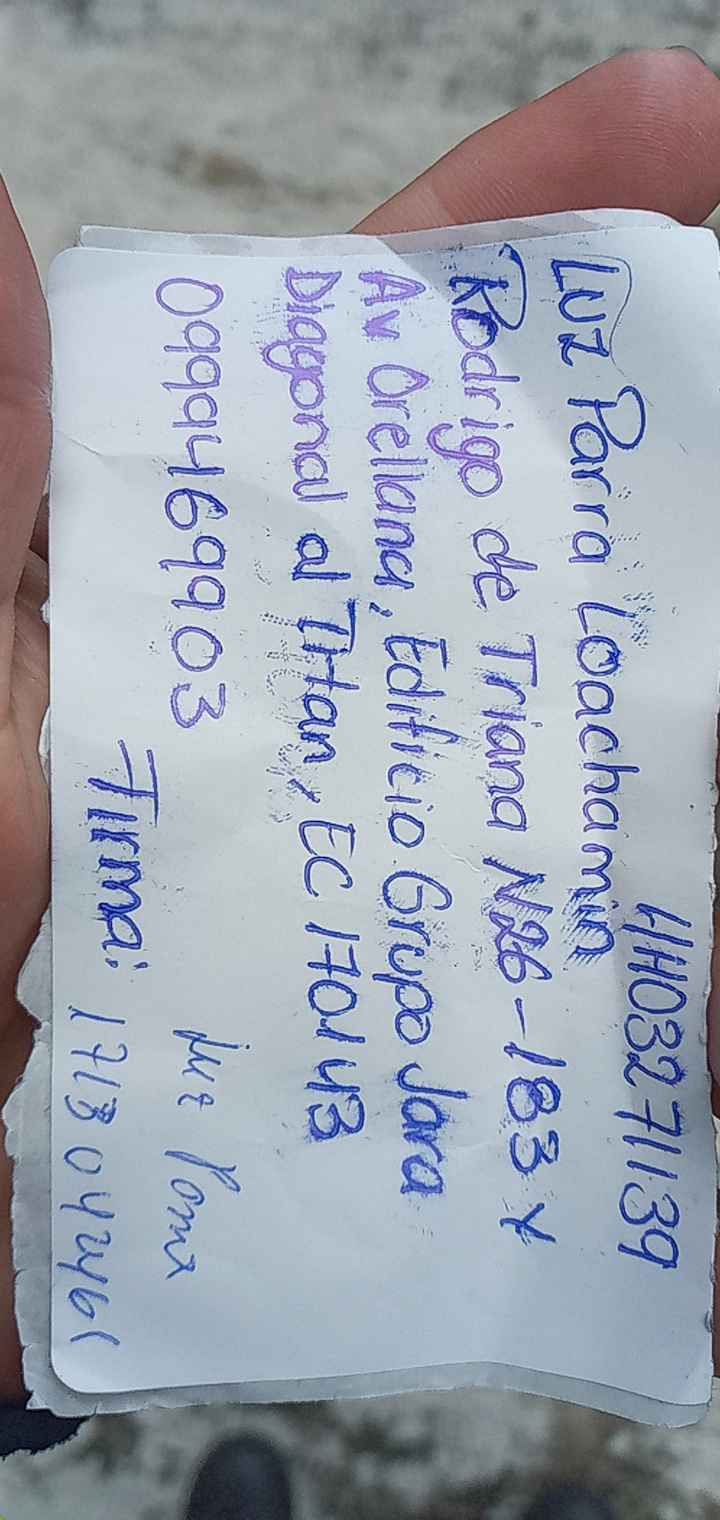 411103271139
Luz Parra Loachamin
Rodrigo de Triana N26-183 Y
Av Orellana, Edificio Grupo Jara
Diagonal al Titan, EC 170143
0999469903
Firma: Luz Parra
1713042461